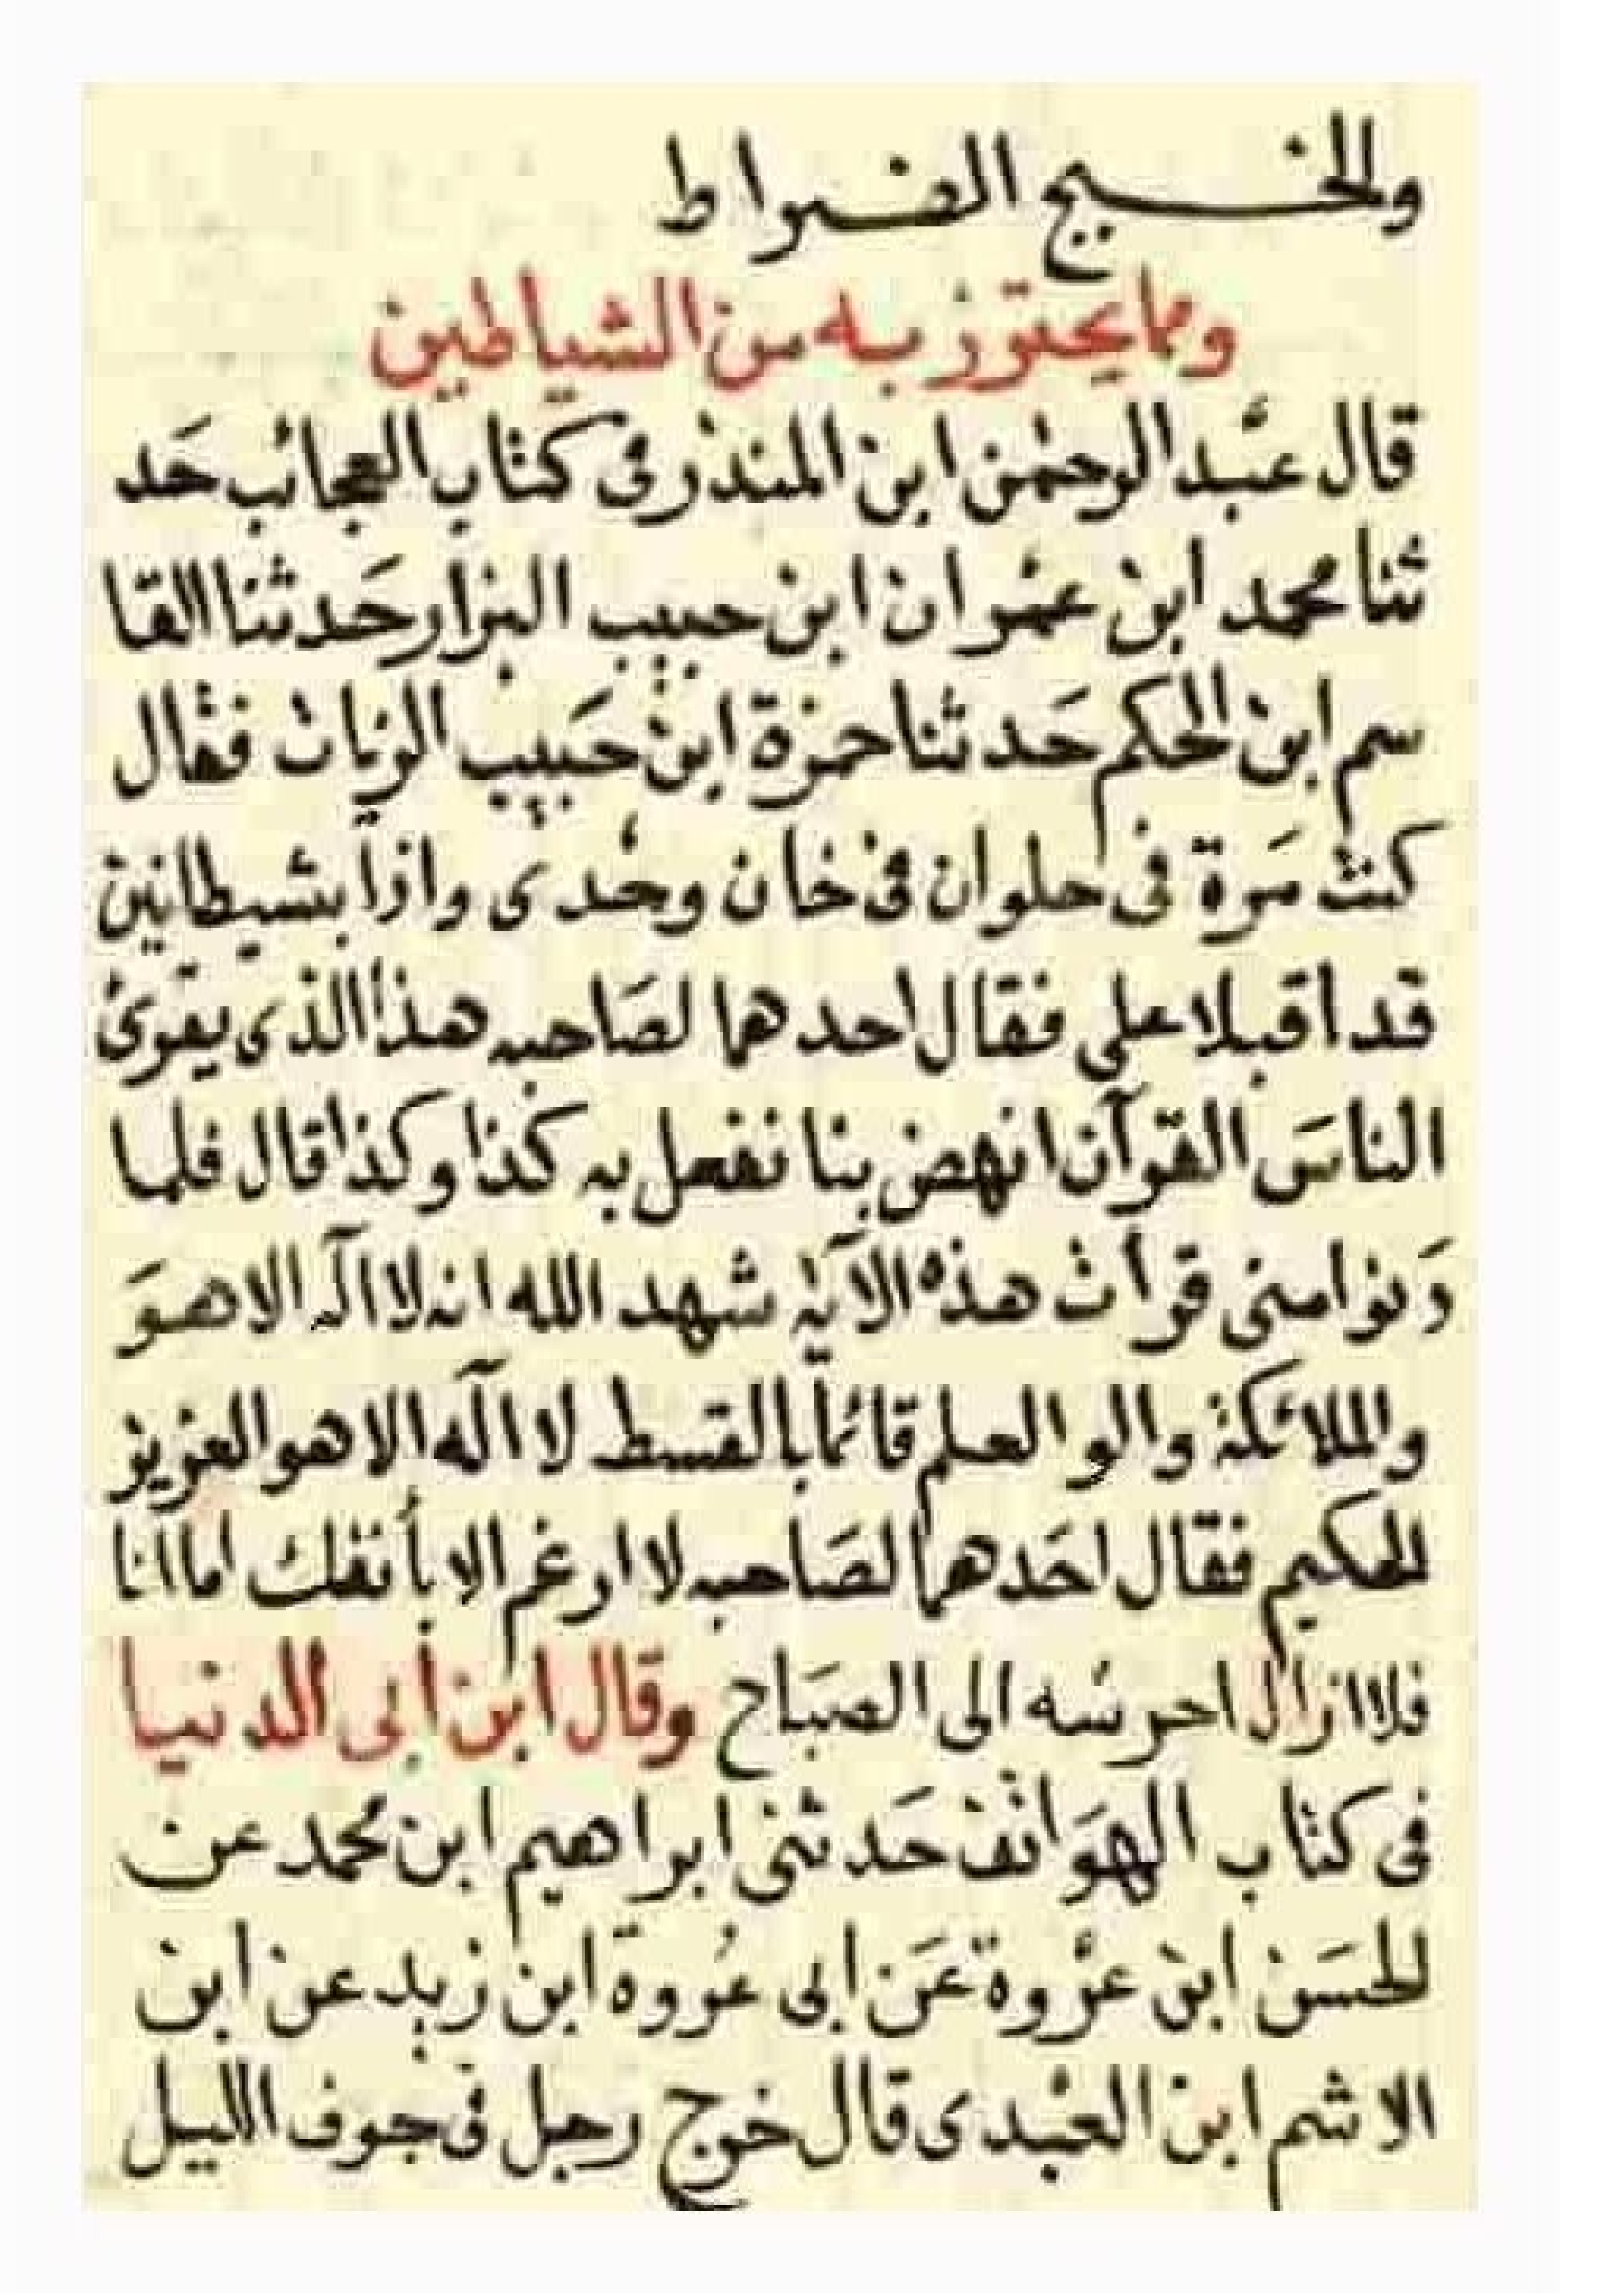 والخبيج الضراط
ومما يحترز به من الشياطين
قال عبد الرحمن ابن المنذر فى كتاب العجائب حَد
ثنا محمد ابن عمران ابن حبيب البزار حَدثنا القا
سم ابن الحكم حَدثنا حمزة ابن حَبيب الزيات فقال
كنت مَرة فى حلوان فى خان وحدى واذا بشيطانين
قد أقبلا علي فقال احدهما لصَاحبه هذا الذى يقرئ
الناسَ القرآن انهض بنا نفعل به كذا وكذا قال فلما
دَنوا منى قرأت هذه الآية شهد الله انه لا اله الا هوَ
والملائكة والوا العلم قائماً بالقسط لا اله الا هو العزيز
الحكيم فقال احَدهما لصَاحبه لا ارغم الا بأنفك اما انا
فلا ازال احرسه الى الصبَاح وقال ابن أبى الدنيا
فى كتاب الهوَاتف حَدثنى ابراهيم ابن محمد عن
الحسَن ابن عروة عَن ابى عروة ابن زيد عن ابن
الاشم ابن العبدى قال خرج رجل فى جوف الليل